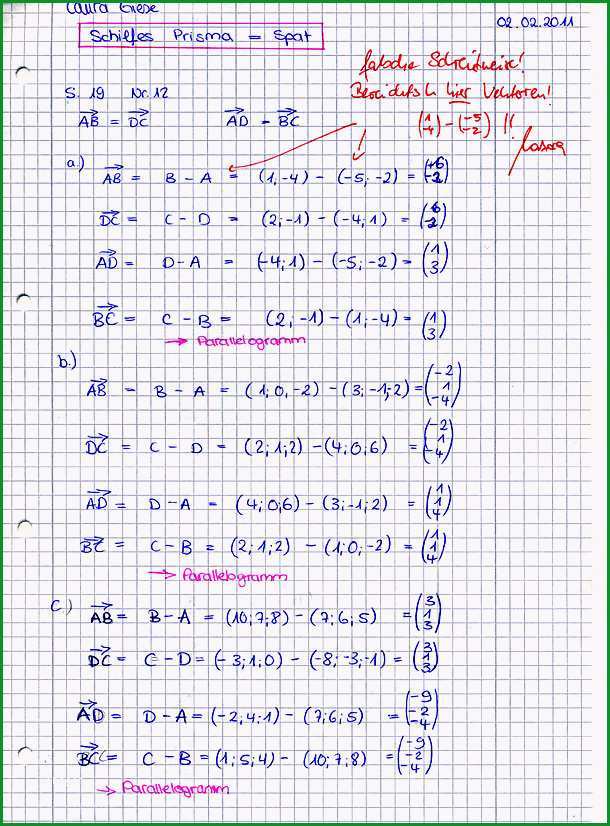 Laura Giese
02.02.2011
Schiefes Prisma = Spat
falsche Schreibweise!
S. 19 Nr. 12
hier Vektoren!
AB→ = DC→ AD→ = BC→
(1 -4) - (-5 -2) !!
a.) AB→ = B - A = (1, -4) - (-5; -2) = (+6 -2)
DC→ = C - D = (2; -1) - (-4; 1) = (6 -2)
AD→ = D - A = (-4; 1) - (-5; -2) = (1 3)
BC→ = C - B = (2; -1) - (1; -4) = (1 3)
→ Parallelogramm
b.)
AB→ = B - A = (1; 0, -2) - (3; -1; 2) = (-2 1 -4)
DC→ = C - D = (2; 1; 2) - (4; 0; 6) = (-2 1 -4)
AD→ = D - A = (4; 0; 6) - (3; -1; 2) = (1 1 4)
BC→ = C - B = (2; 1; 2) - (1; 0; -2) = (1 1 4)
→ Parallelogramm
c.) AB→ = B - A = (10; 7; 8) - (7; 6; 5) = (3 1 3)
DC→ = C - D = (-3; 1; 0) - (-8; -3; -1) = (3 1 3)
AD→ = D - A = (-2; 4; 1) - (7; 6; 5) = (-9 -2 -4)
BC→ = C - B = (1; 5; 4) - (10; 7; 8) = (-9 -2 -4)
→ Parallelogramm